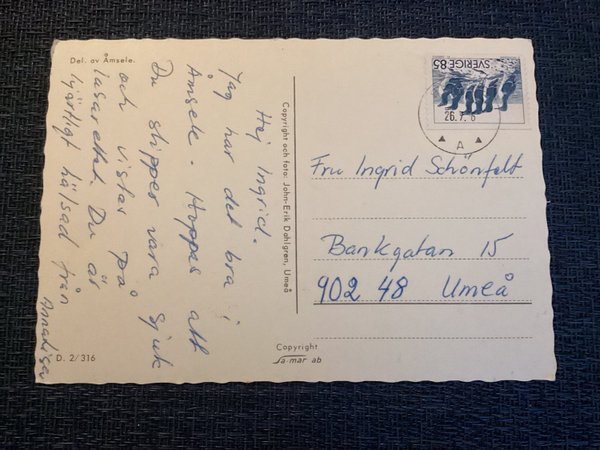 Del. av Åmsele.
Hej Ingrid.
Jag har det bra i
Åmsele. Hoppas att
Du slipper vara sjuk
och vistas på
lasarettet. Du är
hjärtligt hälsad från
Annalisa
D. 2/316
Copyright och foto: John-Erik Dahlgren, Umeå
Copyright
Sa-mar ab
SVERIGE 85
26.7.6
A
Fru Ingrid Schönfelt
Bankgatan 15
902 48 Umeå